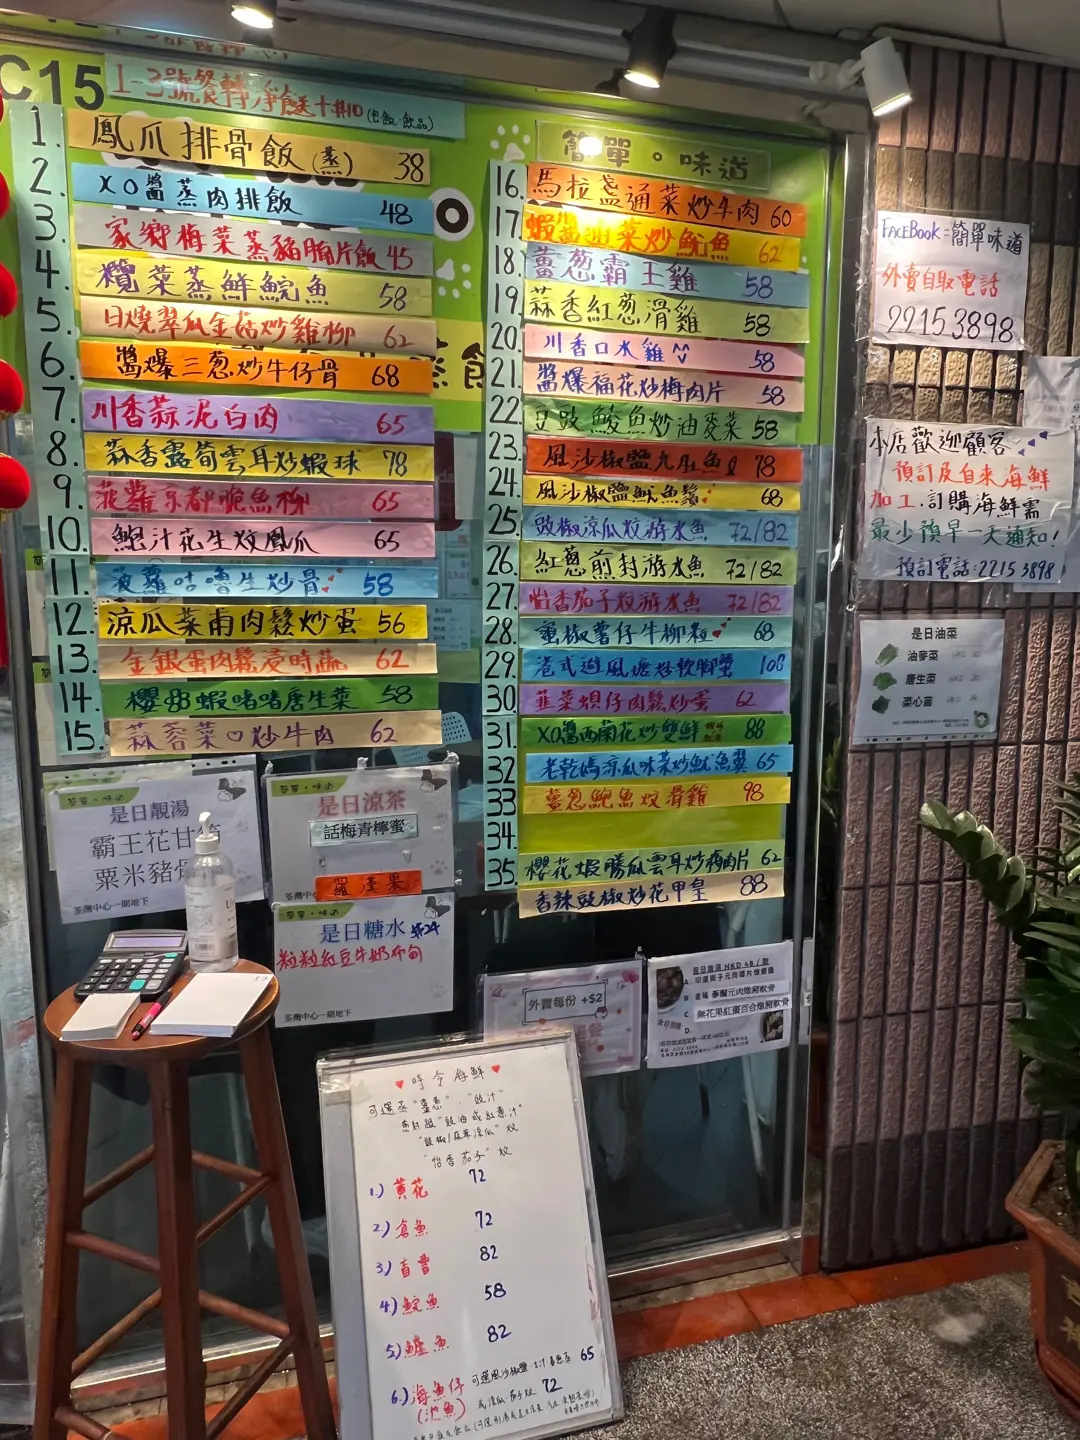 C15
1-3號餐轉淨餸+$10
1. 鳳爪排骨飯(蒸) 38
2. XO醬蒸肉排飯 48
3. 家鄉梅菜蒸豬腩片飯 45
4. 欖菜蒸鮮鯇魚 58
5. 日燒翠瓜金菇炒雞柳 62
6. 醬爆三葱炒牛仔骨 68
7. 川香蒜泥白肉 65
8. 蒜香露筍雲耳炒蝦球 78
9. 京都脆魚柳 65
10. 鮑汁花生炆鳳爪 65
11. 菠蘿咕嚕生炒骨 58
12. 涼瓜菜甫肉鬆炒蛋 56
13. 金銀蛋肉鬆浸時蔬 62
14. 櫻花蝦啫啫唐生菜 58
15. 蒜蓉菜♡炒牛肉 62
簡單。味道
16. 馬拉盞通菜炒牛肉 60
17. 蝦醬通菜炒魷魚 62
18. 薑葱霸王雞 58
19. 蒜香紅葱滑雞 58
20. 川香口水雞 58
21. 醬爆福花炒梅肉片 58
22. 豆豉鯪魚炒油麥菜 58
23. 風沙椒鹽九肚魚 78
24. 風沙椒鹽魷魚鬚 68
25. 豉椒涼瓜炆游水魚 72/82
26. 紅葱煎封游水魚 72/82
27. 怡香茄子炆游水魚 72/82
28. 蜜椒薯仔牛柳粒 68
29. 港式避風塘炒軟脚蟹 108
30. 韮菜蜆仔肉鬆炒蛋 62
31. XO醬西蘭花炒雙鮮 88
32 老乾媽涼瓜味菜炒魷魚翼 65
33 薑葱鮑魚炆滑雞 98
34.
35. 櫻花蝦勝瓜雲耳炒梅肉片 62
香辣豉椒炒花甲皇 88
FACEBook=簡單味道
外賣自取電話
22153898
本店歡迎顧客
預訂及自來海鮮
加工.訂購海鮮需
最少預早一天通知!
預訂電話:22153898
是日油菜
油麥菜
唐生菜
菜心苗
簡單。味道
是日靚湯
霸王花甘
粟米豬骨
荃灣中心一期地下
簡單。味道
是日涼茶
話梅青檸蜜
羅漢果
簡單。味道
是日糖水 $24
粒粒紅豆牛奶布甸
荃灣中心一期地下
外賣每份 +$2
是日燉湯 HKD 48 / 盅
A
B
C 無花果紅棗百合燉豬軟骨
D.
♥時令海鮮♥
可選蒸"薑葱"、"豉汁"
煎封跟"豉油或紅葱汁"
"怡香茄子"炆
1.) 黃花 72
2.) 倉魚 72
3.) 盲曹 82
4) 鯇魚 58
5.) 鱸魚 82
6.) 海魚仔 可選風沙椒鹽 65
(池魚) 72